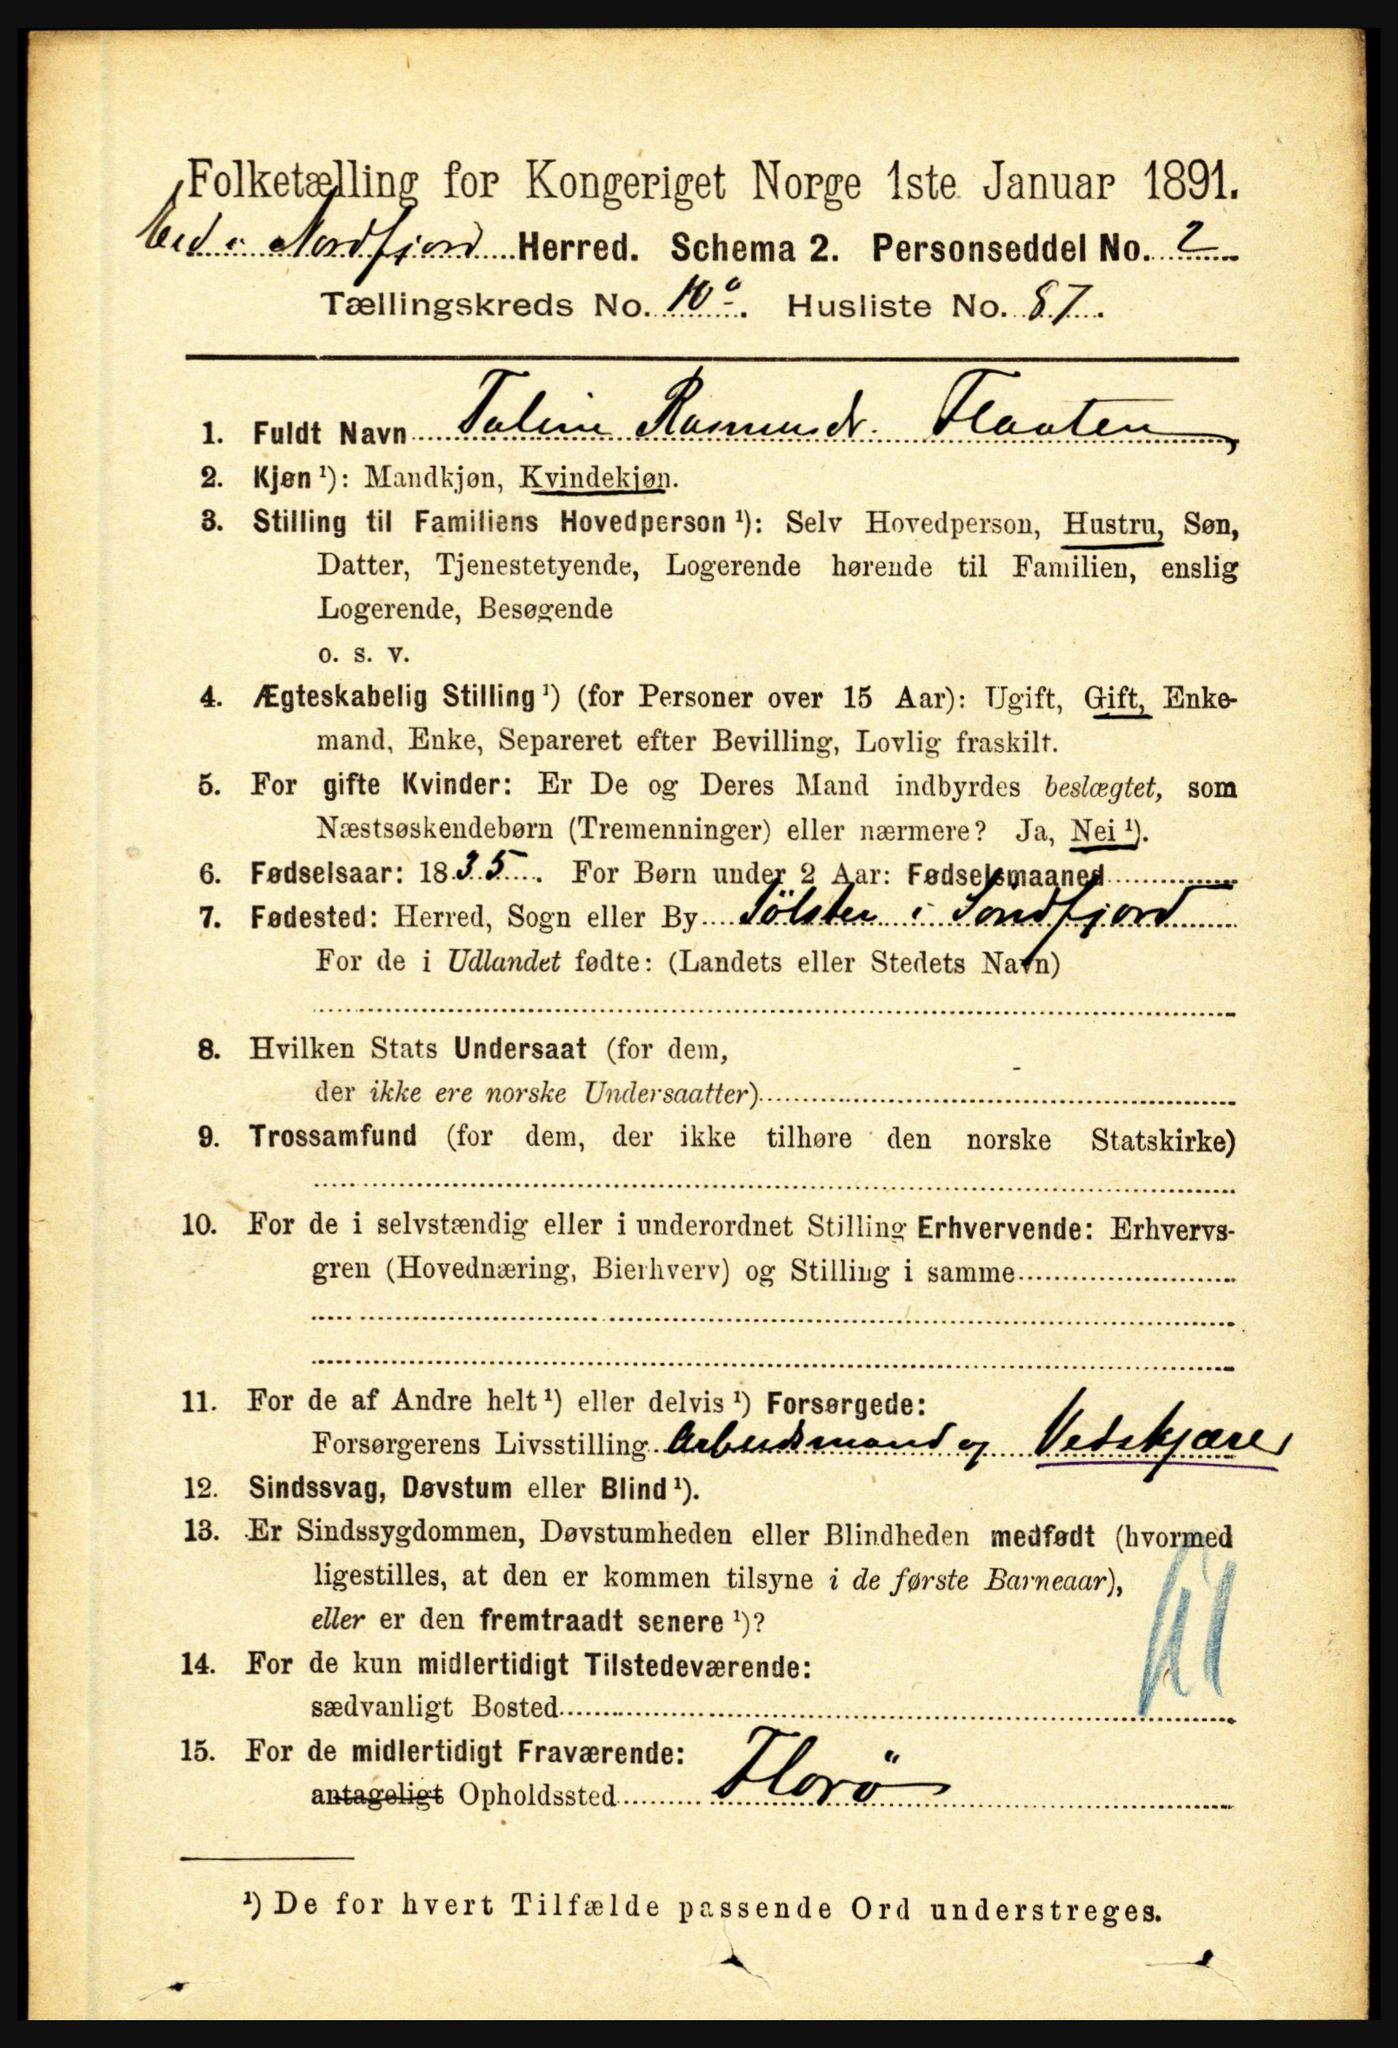 Folketælling for Kongeriget Norge 1ste Januar 1891.
Eid i Nordfjord Herred. Schema 2. Personseddel No. 2
Tællingskreds No. 10a. Husliste No. 87.
1. Fuldt Navn Taline Rasmusdr. Flaaten
2. Kjøn ¹): Mandkjøn, Kvindekjøn.
3. Stilling til Familiens Hovedperson ¹): Selv Hovedperson, Hustru, Søn,
Datter, Tjenestetyende, Logerende hørende til Familien, enslig
Logerende, Besøgende
o. s. v.
4. Ægteskabelig Stilling ¹) (for Personer over 15 Aar): Ugift, Gift, Enke-
mand, Enke, Separeret efter Bevilling, Lovlig fraskilt.
5. For gifte Kvinder: Er De og Deres Mand indbyrdes beslægtet, som
Næstsøskendebørn (Tremenninger) eller nærmere? Ja, Nei ¹).
6. Fødselsaar: 1835. For Børn under 2 Aar: Fødselsmaaned
7. Fødested: Herred, Sogn eller By i Söndfjord
For de i Udlandet fødte: (Landets eller Stedets Navn)
8. Hvilken Stats Undersaat (for dem,
der ikke ere norske Undersaatter)
9. Trossamfund (for dem, der ikke tilhøre den norske Statskirke)
10. For de i selvstændig eller i underordnet Stilling Erhvervende: Erhvervs-
gren (Hovednæring, Bierhverv) og Stilling i samme
11. For de af Andre helt ¹) eller delvis ¹) Forsørgede:
Forsørgerens Livsstilling Arbeidsmand og Vedskjærer
12. Sindssvag, Døvstum eller Blind ¹).
13. Er Sindssygdommen, Døvstumheden eller Blindheden medfødt (hvormed
ligestilles, at den er kommen tilsyne i de første Barneaar),
eller er den fremtraadt senere ¹)?
14. For de kun midlertidigt Tilstedeværende:
sædvanligt Bosted
15. For de midlertidigt Fraværende:
antageligt Opholdssted Florö
¹) De for hvert Tilfælde passende Ord understreges.